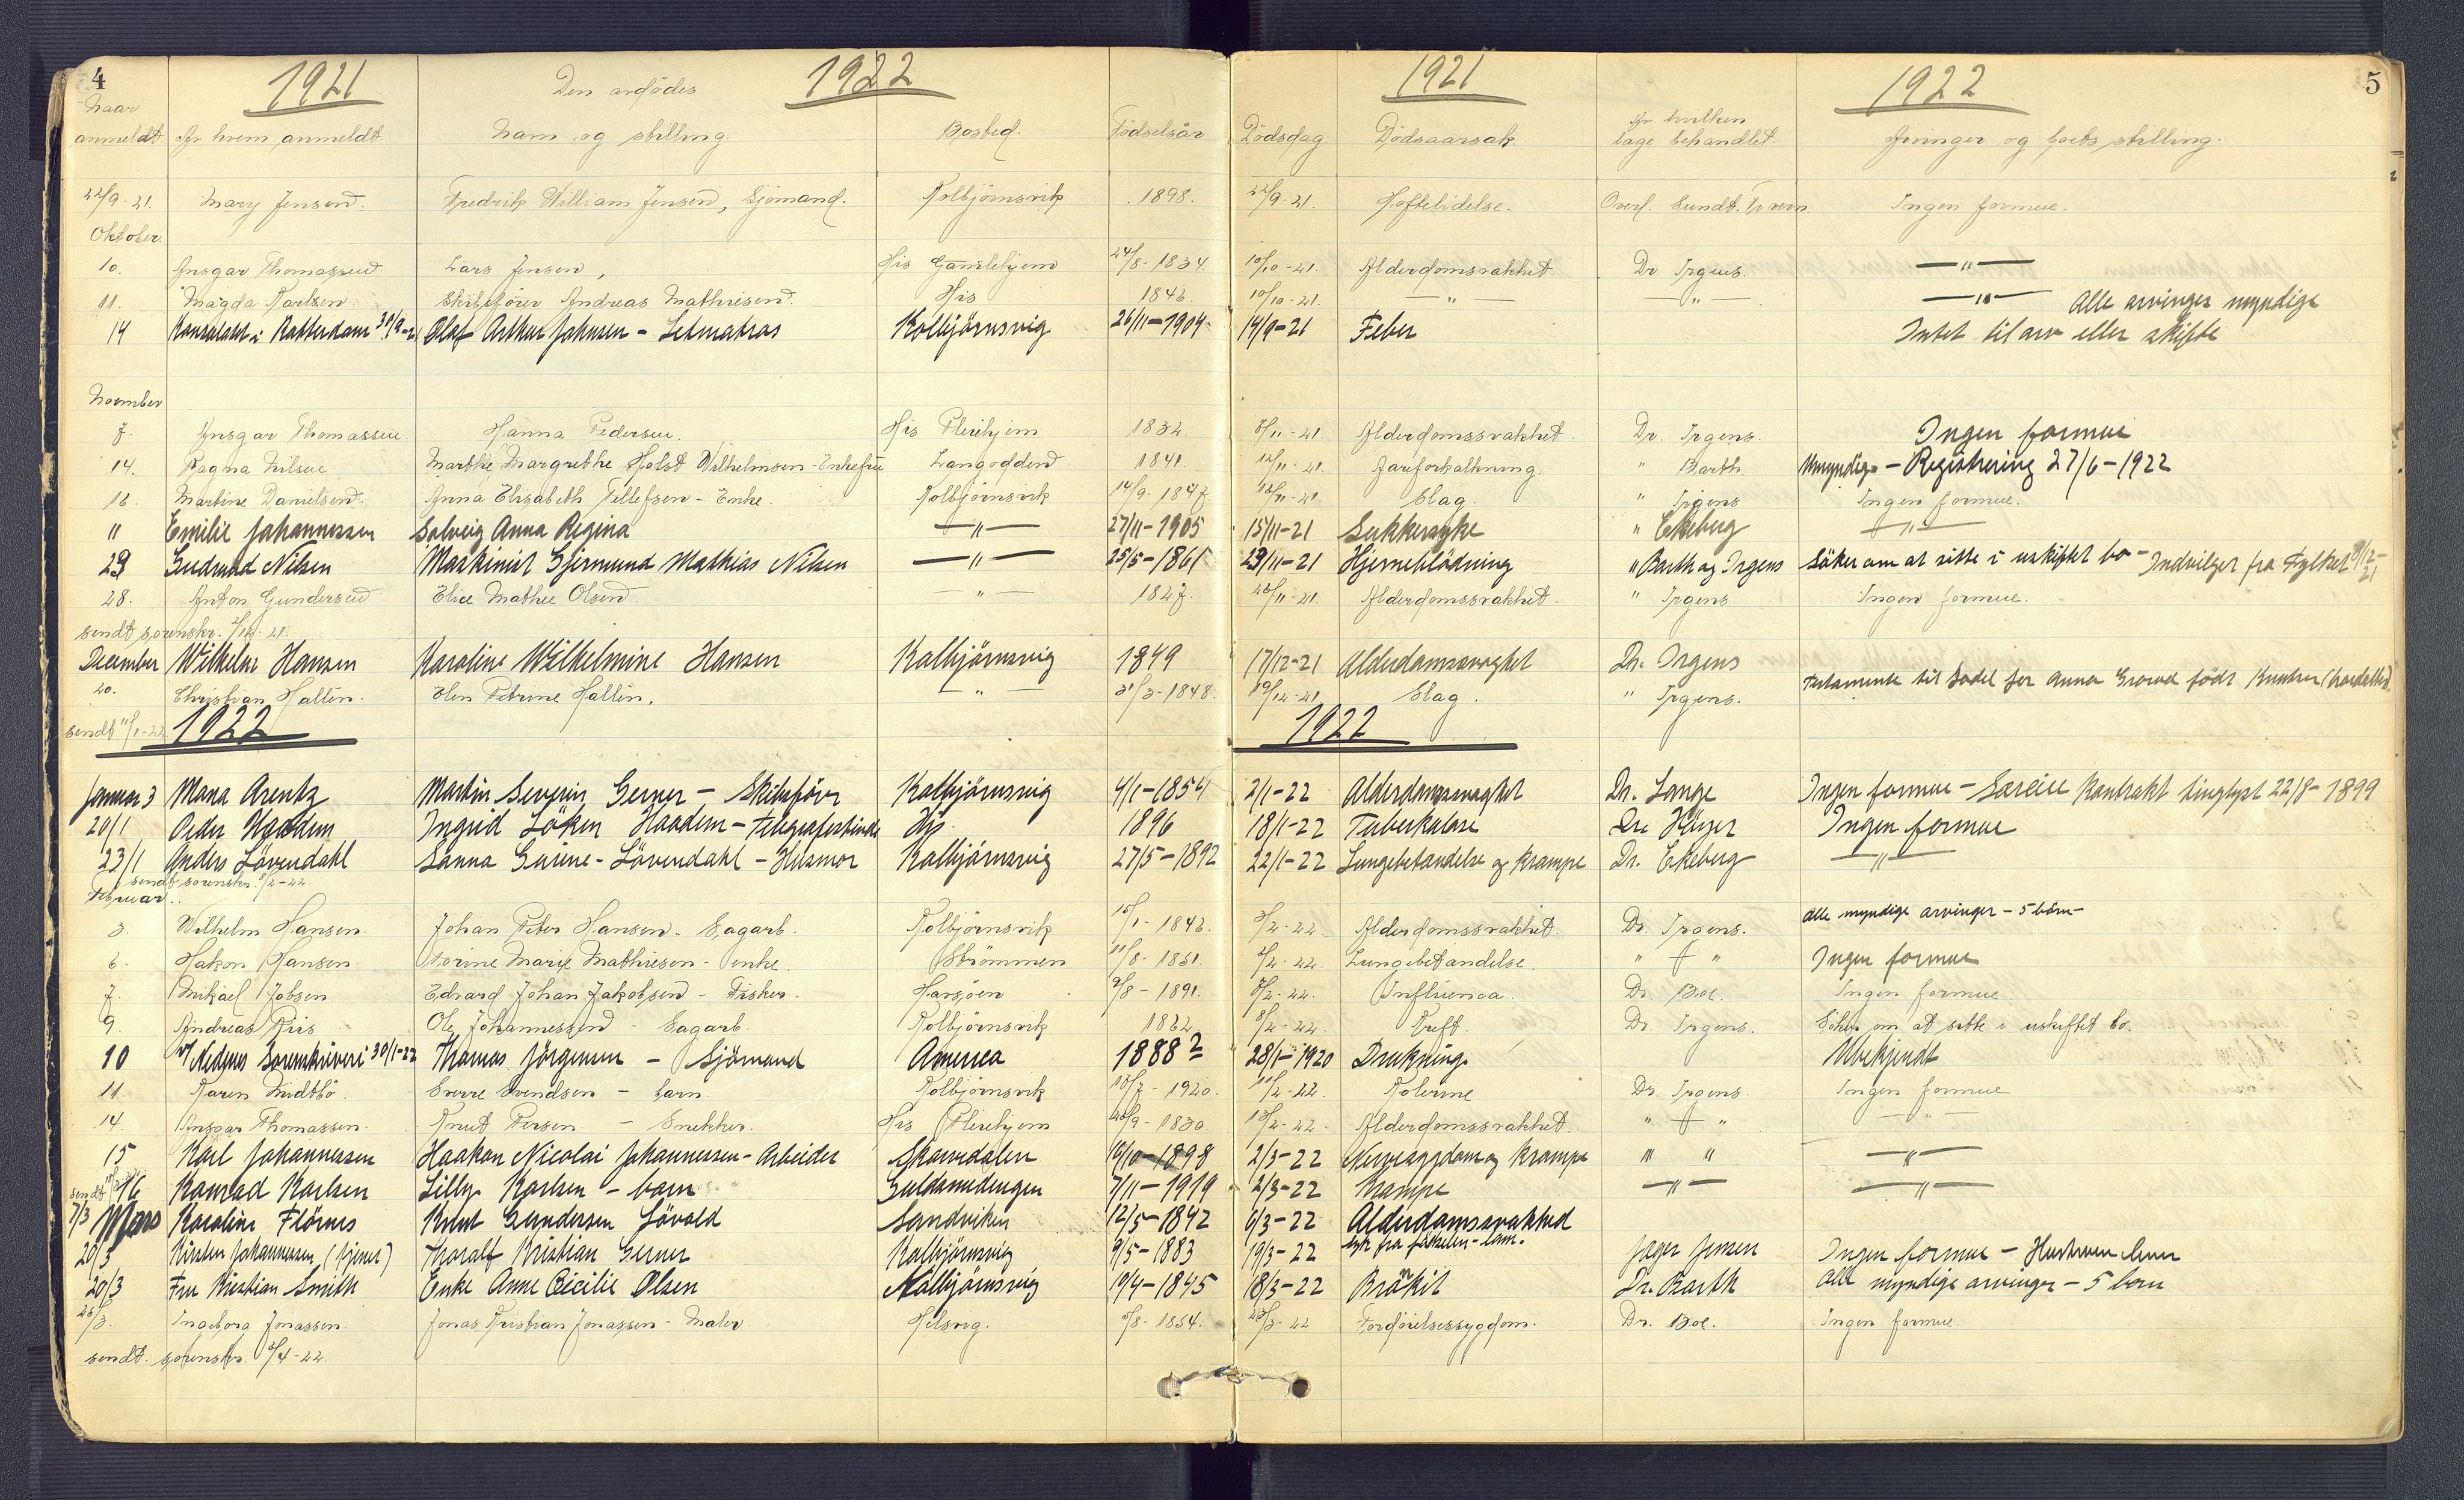 4 1921 1922 1921 1922 5
Naar anmeldt. Af hvem anmeldt. Den avdødes navn og stilling Bosted. Fødselsår Dødsdag. Dødsaarsak. Af hvilken læge behandlet. Arvinger og boets stilling.
22/9-21. Mary Jensen. Fredrik William Jensen, Sjömand. Kolbjörnsvik 1898. 22/9-21. Hoftelidelse. Ingen formue.
Oktober.
10. Ansgar Thomassen Lars Jensen, His Gamlehjem 24/8-1834. 10/10-21. Alderdomssvakhet Dr Irgens. —"—
11. Magda Karlsen Skibsfører Andreas Mathiesen. His 1842. 10/10-21. —"— —"— —"— Alle arvinger myndige
14 Konsulatet i Rotterdam 30/9-21 Olaf Arthur Johnsen - Letmatros Kolbjörnsvig 26/11-1904 14/9-21 Feber Intet til arv eller skifte
November
7. Ansgar Thomassen. Hanna Pedersen. His Pleiehjem 1832. 7/11-21. Alderdomssvakhet. Dr. Irgens. Ingen formue
14. Ragna Nilsen Marthe Margrethe Holst Wilhelmsen - Enkefru Langodden 1841. 12/11-21. Aareforkalkning. " Barth. Umyndige - Registrering 27/6-1922
16. Martine Danielsen. Anna Elisabeth Tellefsen - Enke. Kolbjörnsvik 14/9-1847. 16/11-21. Slag. " Irgens Ingen formue.
" Emilie Johannessen Solveig Anna Regina —"— 27/11-1905 15/11-21 Sukkersyke " Ekeberg —"—
29 Gudrund Nilsen Maskinist Gjermund Mathias Nilsen —"— 25/5-1861 23/11-21 Hjerneblödning " Barth og Irgens Söker om at sitte i uskiftet bo - Indvilget fra Fylket 9/12-21
28. Anton Gundersen Elise Mathee Olsen. —"— 1827. 26/11-21. Alderdomssvakhet. " Irgens Ingen formue.
sendt sorenskr. 2/12-21.
December Wilhelm Hansen Karoline Wilhelmine Hansen Kolbjörnsvig 1849 17/12-21 Alderdomssvaghet Dr. Irgens
20. Christian Hallin. Elen Petrine Hallin. —"— 31/3-1848. 19/12-21. Slag. " Irgens. Testamente til fordel for Anna Grovd födt Knutsen
sendt 11/1-22 1922 1922
Januar 3 Maria Arentz Martin Severin Gerner - Skibsförer Kolbjörnsvig 4/1-1854 2/1-22 Alderdomssvaghet Dr. Lange Ingen formue - Særeie kontrakt tinglyst 22/8-1899
20/1 Peder Haadem Ingrid Löken Haadem - Telegrafistinde His 1896 18/1-22 Tuberkulose Dr. Höyer Ingen formue
23/1 Anders Lövendahl Sanna Gurine - Lövendahl - Husmor Kolbjörnsvig 27/5-1892 22/1-22 Lungebetændelse og Krampe Dr. Ekeberg —"—
sendt sorenskr. 1/2-22.
Februar.
3. Wilhelm Hansen. Johan Peter Hansen - Sagarb. Kolbjörnsvik 15/1-1842. 3/2-22. Alderdomssvakhet. Dr. Irgens. Alle myndige arvinger - 5 börn -
6. Hakon Hansen. Torine Marie Mathiesen - enke. Strömmen 11/8-1851. 5/2-22. Lungebetændelse. " " Ingen formue
7. Mikael Jobsen Edvard Johan Jakobsen - Fisker. Havsöen 9/8-1891. 7/2-22. Influenca. Dr. Boe. Ingen formue
9. Andreas Riis Ole Johannessen - Sagarb. Kolbjörnsvik 1862 8/2-22. Kræft. Dr. Irgens. Söker om at sitte i uskiftet bo.
10 v/ Nedenes Sorenskriveri 30/1-22 Thomas Jörgensen - Sjömand America 1888? 28/1-1920 Drukning Ubekjendt
11. Karen Midtbö. Sverre Svendsen - barn. Kolbjörnsvik 18/7-1920. 11/2-22. Kolerine Dr. Irgens. Ingen formue
14. Ansgar Thomassen. Knut Persen - Snekker. His Pleiehjem 26/9-1830. 13/2-22. Alderdomssvakhet. " " —"—
15 Karl Johannessen Haakon Nicolai Johannessen - Arbeider Skarvdalen 16/10-1898 2/3-22 Nervesygdom og Krampe " " —"—
16 Konrad Karlsen Lilly Karlsen - barn Guldsmedengen 7/11-1919 2/3-22 Krampe —"— —"—
7/3 Mars Karoline Flörnes Knut Gundersen Lövold Sandviken 12/5-1842 6/3-22 Alderdomssvakhed
20/3 Kirsten Johannessen (tjener) Thoralf Kristian Gerner Kolbjörnsvig 9/5-1883 19/3-22 syk fra födselen - lam. Jæger Jensen Ingen formue - Hustruen lever
20/3 Fru Kristian Smith Enke Anne Cecilie Olsen Kolbjörnsvig 10/4-1845 18/3-22 Bronkit Dr. Barth Alle myndige arvinger - 5 barn
25/3. Ingeborg Jonassen. Jonas Kristian Jonassen - Maler Hilsvig. 5/8-1854. 23/3-22 Fordöielsessygdom. Dr. Boe. Ingen formue
sendt. sorenskr. 3/4-22